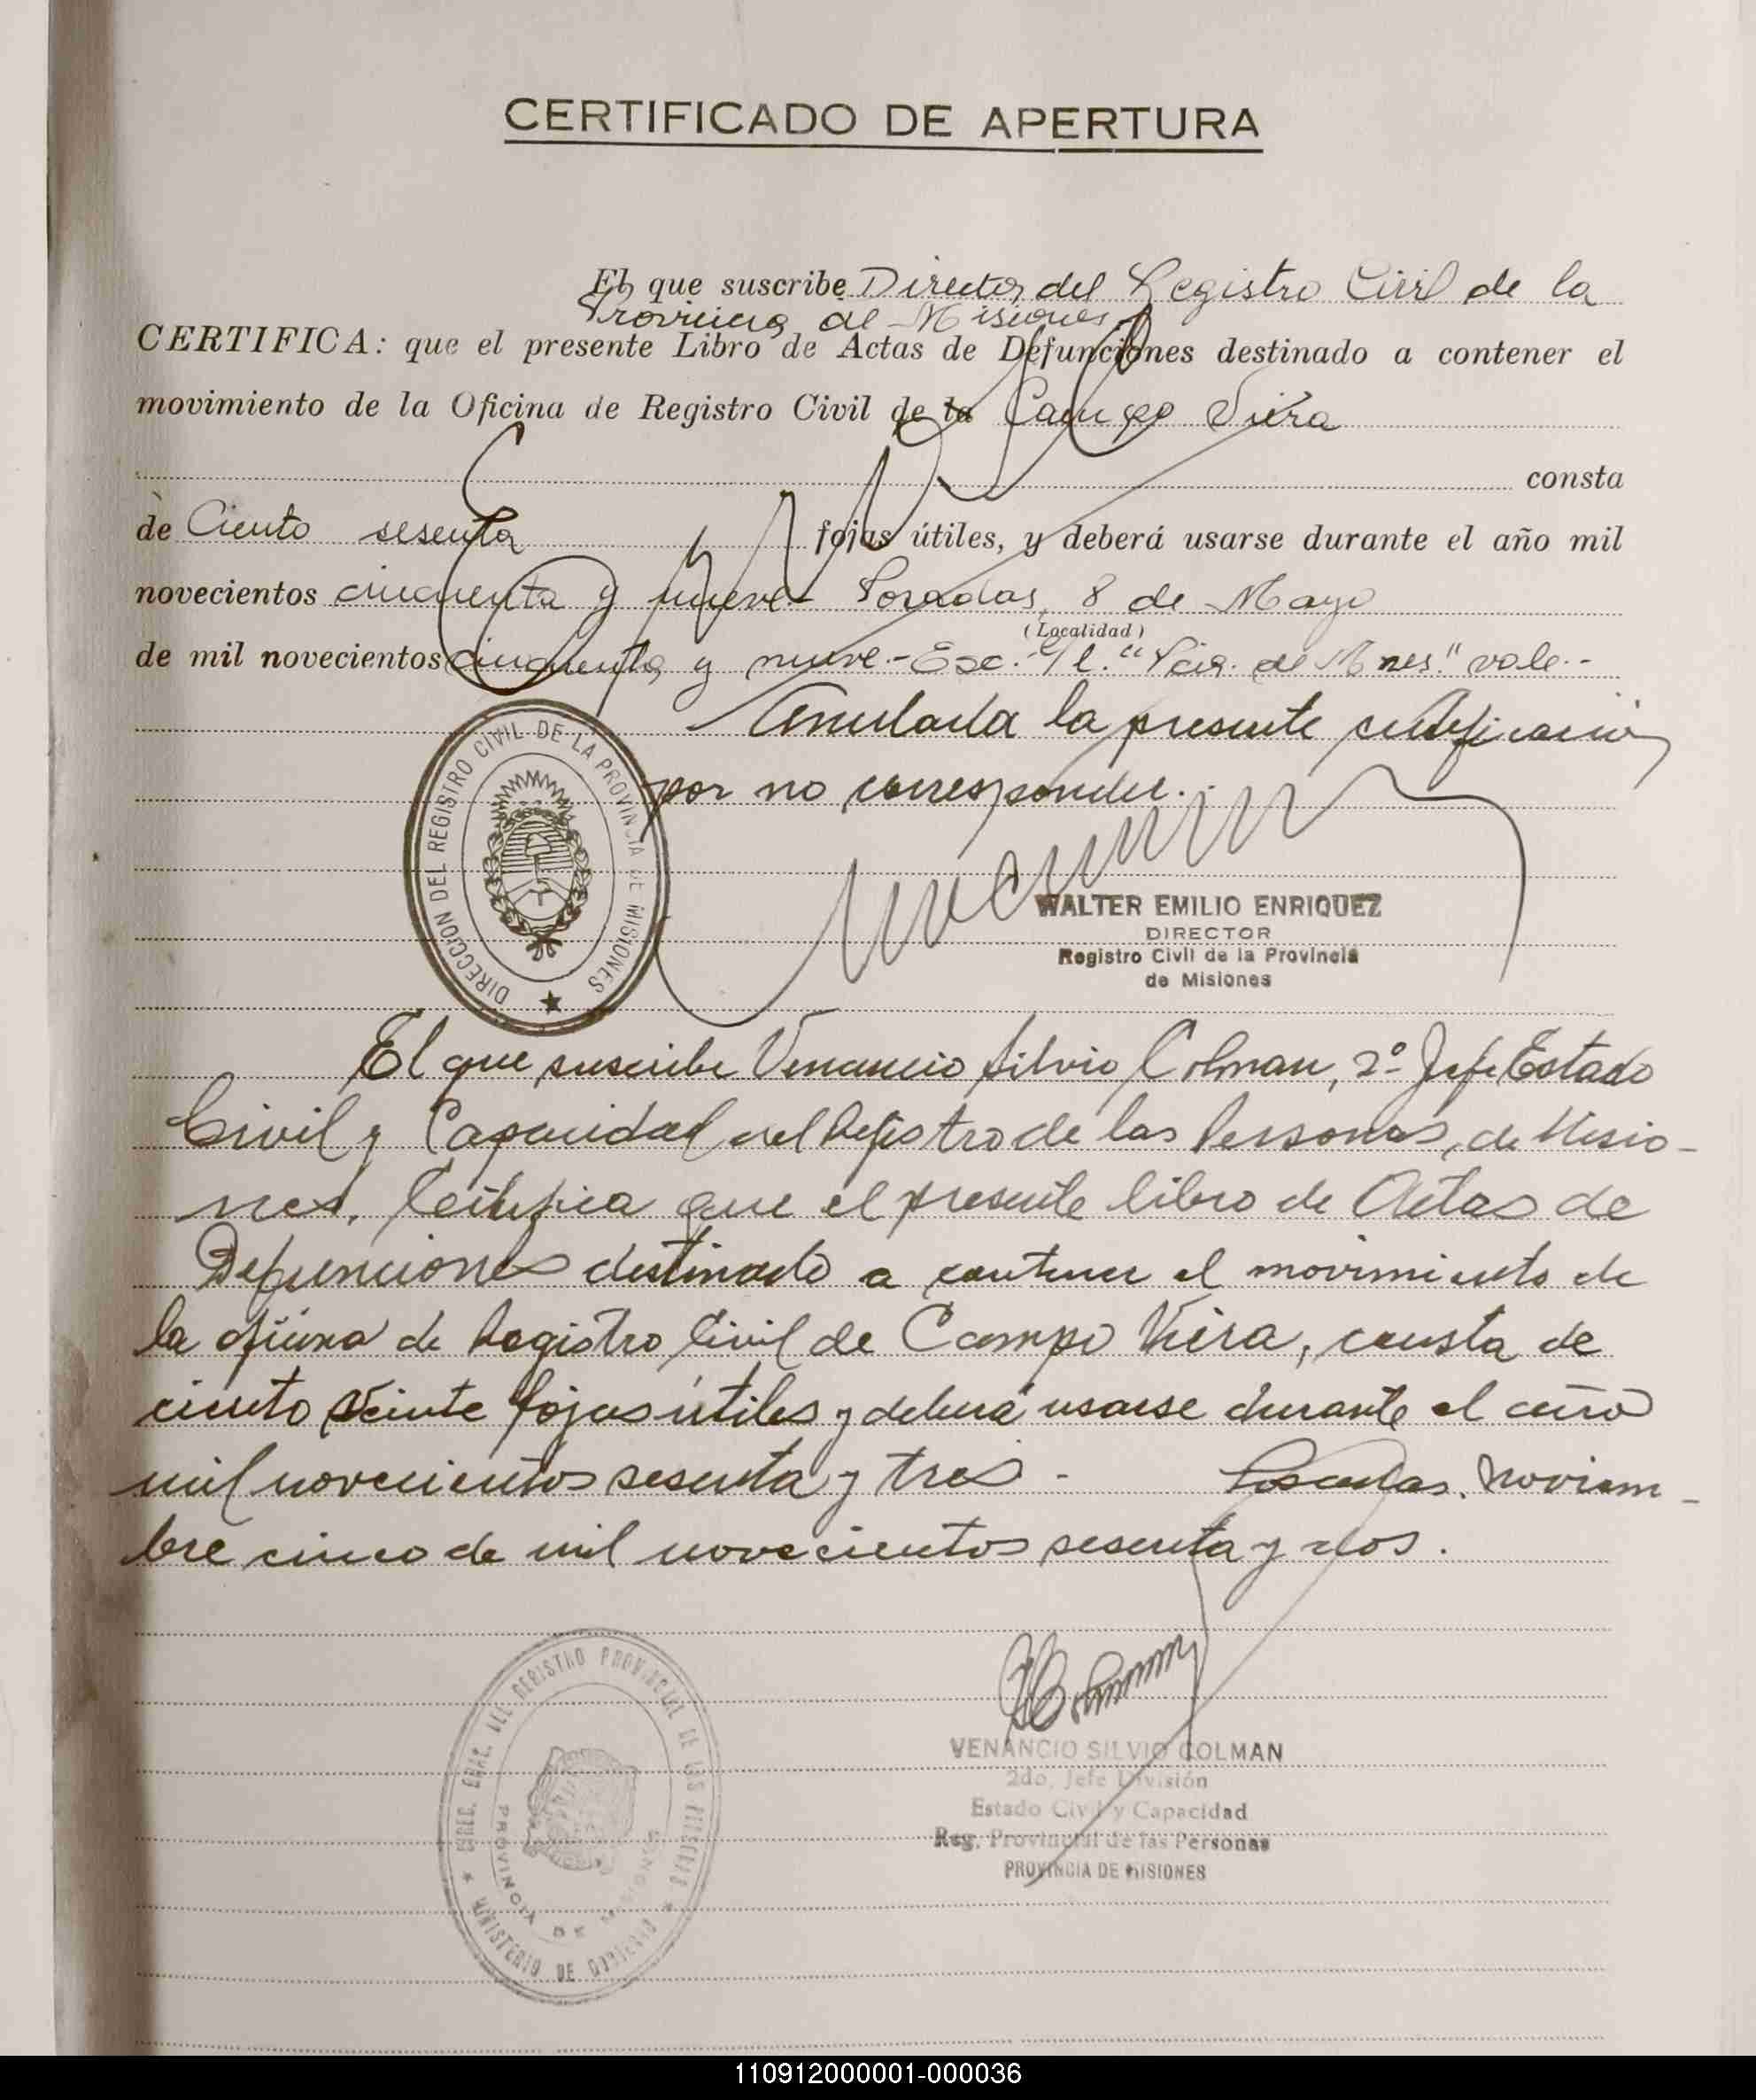 CERTIFICADO DE APERTURA
El que suscribe Director del Registro Civil de la
Provincia de Misiones
CERTIFICA: que el presente Libro de Actas de Defunciones destinado a contener el
movimiento de la Oficina de Registro Civil de la Campo Viera
consta
de Ciento sesenta fojas útiles, y deberá usarse durante el año mil
novecientos cincuenta y nueve- Posadas, 8 de Mayo
(Localidad)
de mil novecientos cincuenta y nueve.- Esc. e/l. "Pcia. de Mnes." vale.-
Anulada la presente certificación
por no corresponder.
DIRECCION DEL REGISTRO CIVIL DE LA PROVINCIA DE MISIONES
WALTER EMILIO ENRIQUEZ
DIRECTOR
Registro Civil de la Provincia
de Misiones
El que suscribe Venancio Silvio Colman, 2º Jefe Estado
Civil y Capacidad del Registro de las Personas, de Misio-
nes, Certifica que el presente libro de Actas de
Defunciones destinado a contener el movimiento de
la oficina de Registro Civil de Campo Viera, consta de
ciento veinte fojas útiles y deberá usarse durante el año
mil novecientos sesenta y tres - Posadas, Noviem-
bre cinco de mil novecientos sesenta y dos.
DIREC. GRAL. DEL REGISTRO PROVINCIAL DE LAS PERSONAS
PROVINCIA DE MISIONES
MINISTERIO DE GOBIERNO
VENANCIO SILVIO COLMAN
2do. Jefe División
Estado Civil y Capacidad
Reg. Provincial de las Personas
PROVINCIA DE MISIONES
110912000001-000036